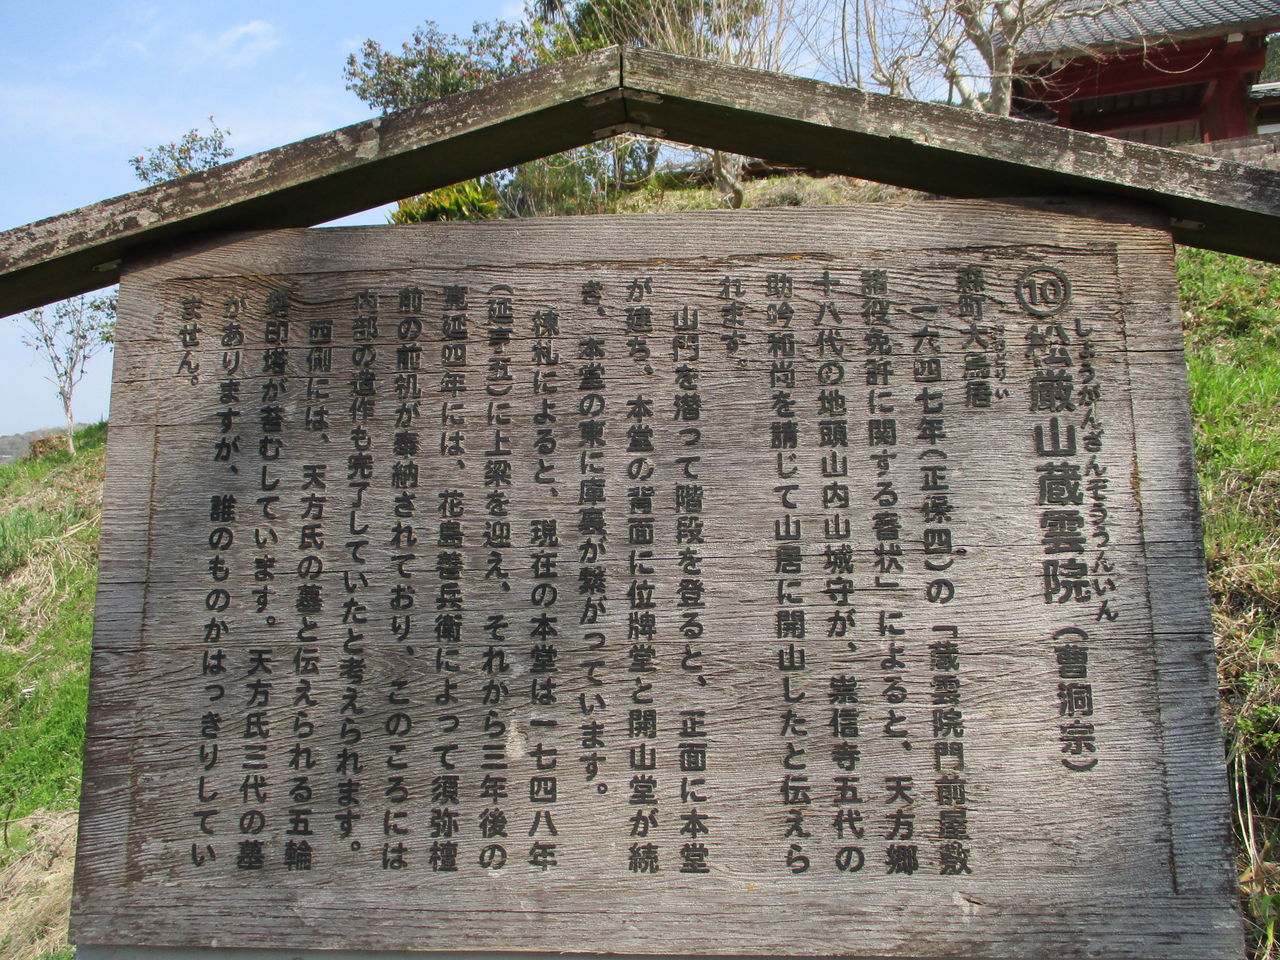 しょうがんざんぞううんいん
⑩松厳山蔵雲院(曹洞宗)
おおとりい
森町大鳥居
一六四七年(正保四)の「蔵雲院門前屋敷
諸役免許に関する書状」によると、天方郷
十八代の地頭山内山城守が、崇信寺五代の
助吟和尚を請じて山居に開山したと伝えら
れます。
山門を潜って階段を登ると、正面に本堂
が建ち、本堂の背面に位牌堂と開山堂が続
き、本堂の東に庫裏が繋がっています。
棟札によると、現在の本堂は一七四八年
(延享五)に上梁を迎え、それから三年後の
寛延四年には、花島善兵衛によって須弥壇
前の前机が奉納されており、このころには
内部の造作も完了していたと考えられます。
西側には、天方氏の墓と伝えられる五輪
篋印塔が苔むしています。天方氏三代の墓
がありますが、誰のものかはっきりしてい
ません。